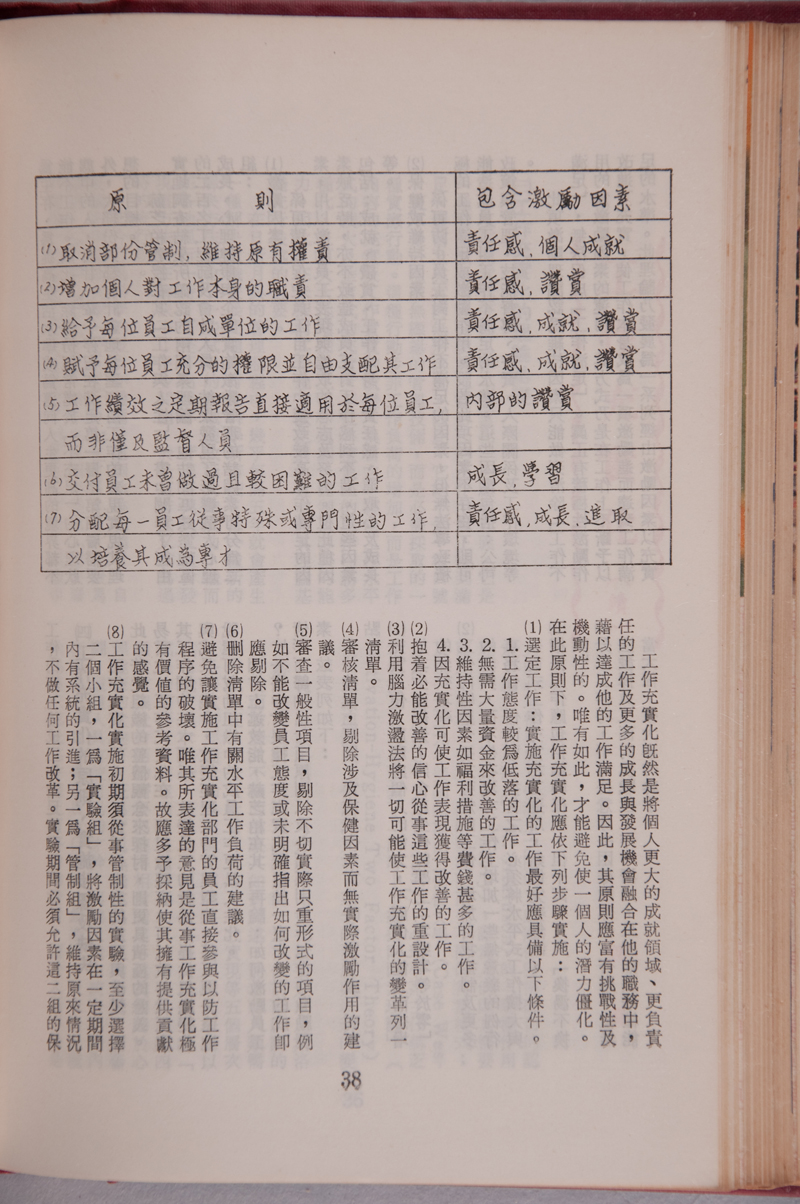 原則 包含激勵因素
(1)取消部份管制，維持原有權責 責任感、個人成就
(2)增加個人對工作本身的職責 責任感、讚賞
(3)給予每位員工自成單位的工作 責任感、成就、讚賞
(4)賦予每位員工充分的權限並自由支配其工作 責任感、成就、讚賞
(5)工作績效之定期報告直接適用於每位員工， 內部的讚賞
而非僅及監督人員
(6)交付員工未曾做過且較困難的工作 成長、學習
(7)分配每一員工從事特殊或專門性的工作， 責任感、成長、進取
以培養其成為專才
工作充實化旣然是將個人更大的成就領域、更負責
任的工作及更多的成長與發展機會融合在他的職務中，
藉以達成他的工作滿足。因此，其原則應富有挑戰性及
機動性的。唯有如此，才能避免使一個人的潛力僵化。
在此原則下，工作充實化應依下列步驟實施：
(1)選定工作：實施充實化的工作最好應具備以下條件。
1.工作態度較爲低落的工作。
2.無需大量資金來改善的工作。
3.維持性因素如福利措施等費錢甚多的工作。
4.因充實化可使工作表現獲得改善的工作。
(2)抱着必能改善的信心從事這些工作的重設計。
(3)利用腦力激盪法將一切可能使工作充實化的變革列一
清單。
(4)審核清單，剔除涉及保健因素而無實際激勵作用的建
議。
(5)審查一般性項目，剔除不切實際只重形式的項目，例
如不能改變員工態度或未明確指出如何改變的工作卽
應剔除。
(6)刪除清單中有關水平工作負荷的建議。
(7)避免讓實施工作充實化部門的員工直接參與以防工作
程序的破壞。唯其所表達的意見是從事工作充實化極
有價值的參考資料。故應多予採納使其擁有提供貢獻
的感覺。
(8)工作充實化實施初期須從事管制性的實驗，至少選擇
二個小組，一爲「實驗組」，將激勵因素在一定期間
內有系統的引進；另一爲「管制組」，維持原來情況
，不做任何工作改革。實驗期間必須允許這二組的保
38